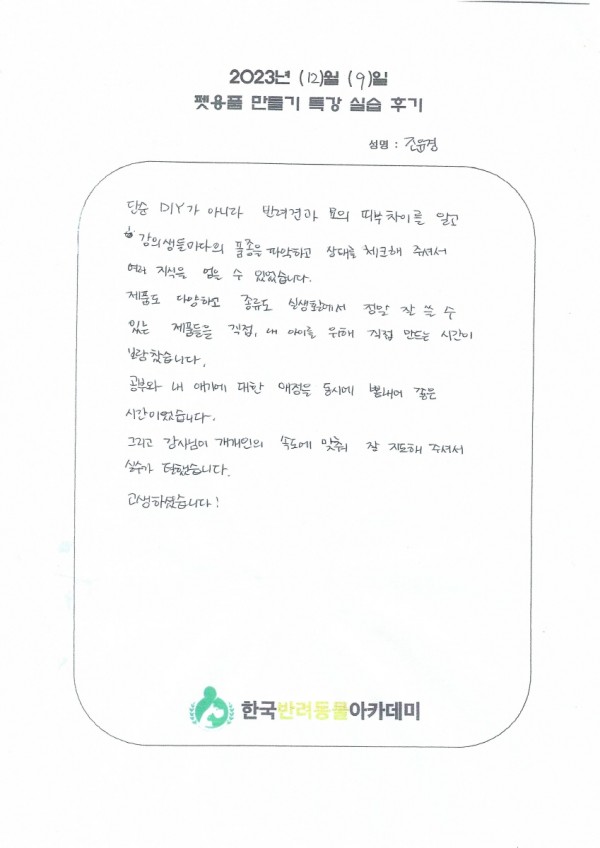 2023년 (12)월 (9)일
펫용품 만들기 특강 실습 후기
성명 : 조윤경
단순 DIY가 아니라 반려견과 모의 피부차이를 알고
강의생들마다의 품종을 파악하고 상태를 체크해 주셔서
여러 지식을 얻을 수 있었습니다.
제품도 다양하고 종류도 실생활에서 정말 잘 쓸 수
있는 제품들을 직접, 내 아이를 위해 직접 만드는 시간이
보람찼습니다.
공부와 내 애기에 대한 애정을 동시에 뽐내어 좋은
시간이었습니다.
그리고 강사님이 개개인의 속도에 맞춰 잘 지도해 주셔서
실수가 덜했습니다.
고생하셨습니다!
한국반려동물아카데미